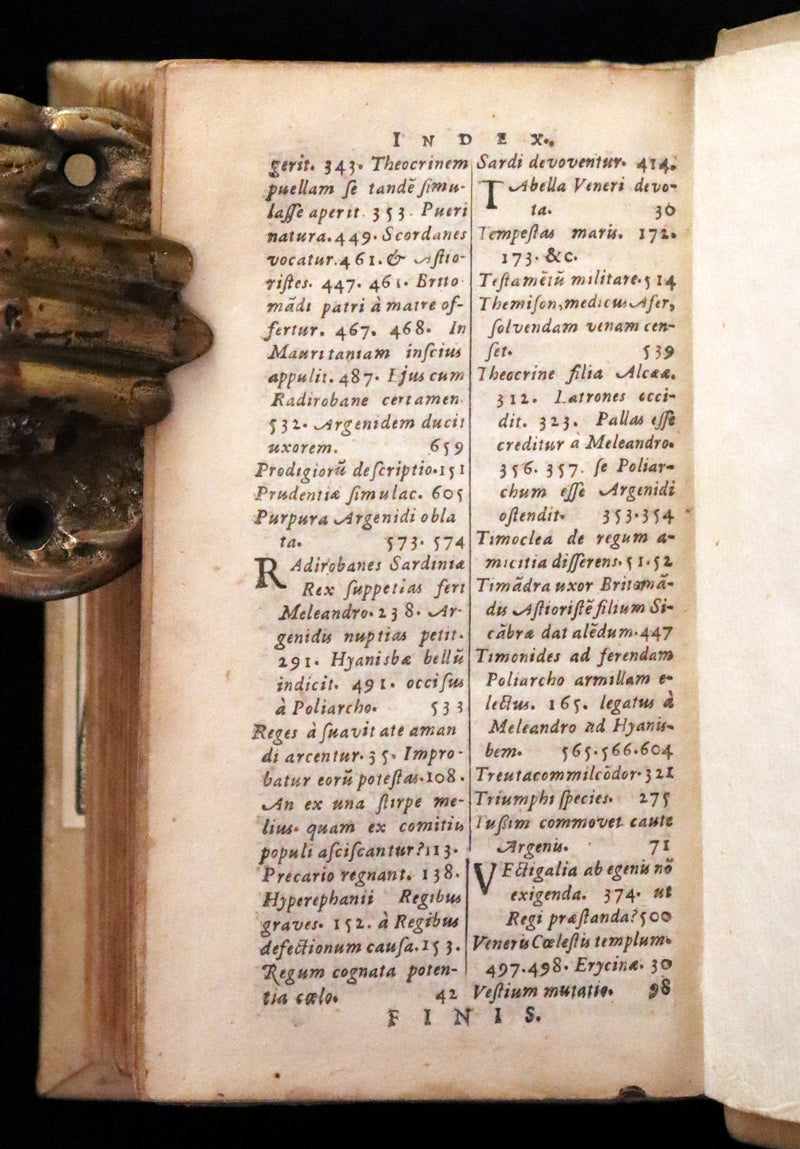 INDEX.
gerit. 343. Theocrinem
puellam se tandē simu-
lasse aperit. 353. Pueri
natura. 449. Scordanes
vocatur. 461. & Astio-
ristes. 447. 461. Brito
mādi patri à matre of-
fertur. 467. 468. In
Mauritaniam inscius
appulit. 487. Ejus cum
Radirobane certamen
532. Argenidem ducit
uxorem. 659
Prodigiorū descriptio. 151
Prudentiæ simulac. 605
Purpura Argenidi obla
ta. 573. 574
RAdirobanes Sardiniæ
Rex suppetias fert
Meleandro. 238. Ar-
genidis nuptias petit.
291. Hyanisbæ bellū
indicit. 491. occisus
à Poliarcho. 533
Reges à suavitate aman
di arcentur. 35. Impro-
batur eorū potestas. 108.
An ex una stirpe me-
lius quam ex comitiis
populi asciscantur? 113.
Precario regnant. 138.
Hyperephanii Regibus
graves. 152. à Regibus
defectionum causa. 153.
Regum cognata poten-
tia cœlo. 42
Sardi devoventur. 414.
TAbella Veneri devo-
ta. 30
Tempestas maris. 172.
173. &c.
Testamētū militare. 514
Themison, medicus Afer,
solvendam venam cen-
set. 539
Theocrine filia Alcææ.
312. Latrones occi-
dit. 323. Pallas esse
creditur à Meleandro.
356. 357. se Poliar-
chum esse Argenidi
ostendit. 353. 354
Timoclea de regum a-
micitia differens. 51. 52
Timādra uxor Britomā-
dis Astioristē filium Si-
cābræ dat alēdum. 447
Timonides ad ferendam
Poliarcho armillam e-
lectus. 165. legatus à
Meleandro ad Hyanis-
bem. 565. 566. 604
Treutacommilcōdor. 321
Triumphi species. 275
Tussim commovet caute
Argenis. 71
VEctigalia ab egenis nō
exigenda. 374. ut
Regi præstanda? 500
Veneris Cœlestis templum.
497. 498. Erycinæ. 30
Vestium mutatio. 98
FINIS.